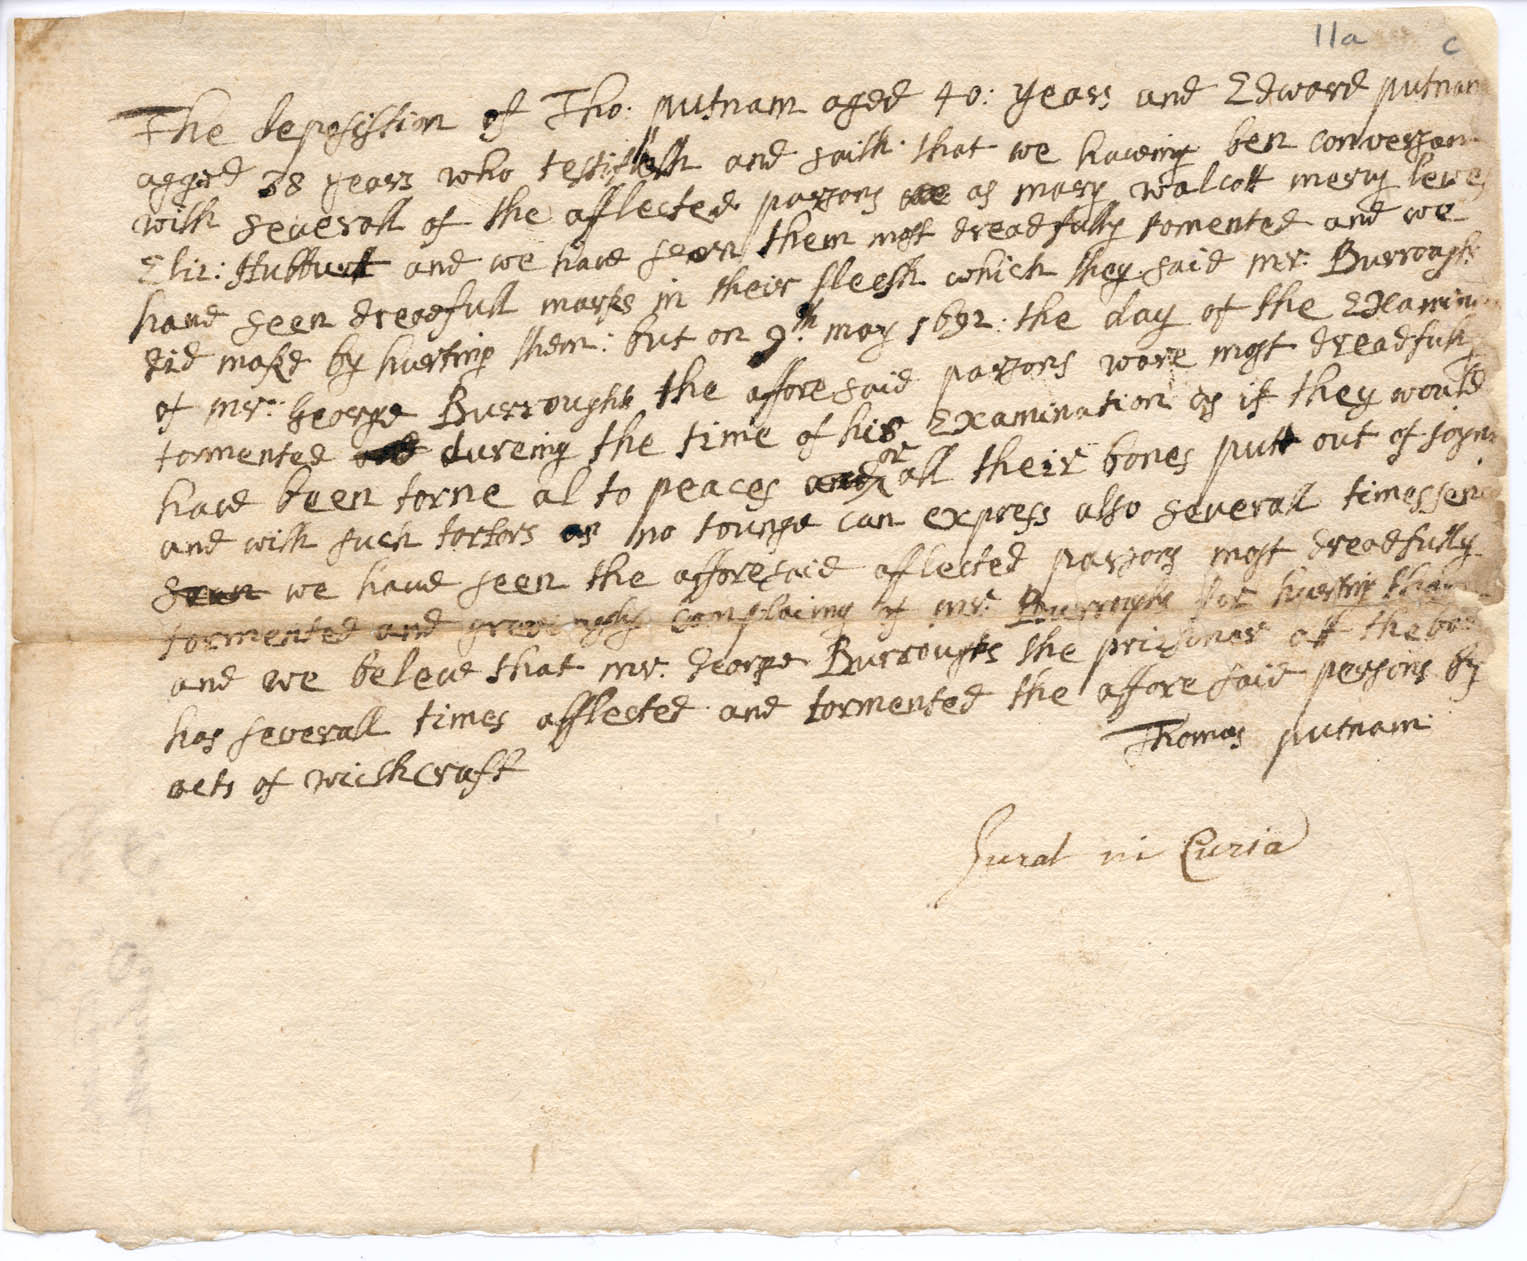 11a c
The deposistion of Tho: putnam aged 40: years and Edward putnam
agged 38 years who testifieth and saith that we haveing ben conversant
with severall of the afflected parsons as mary walcott mercy lewes
Eliz: Hubburt and we have seen them most dreadfully tomented and we
have seen dreadfull marks in their fleesh which they said mr. Burroughs
did make by hurting them: but on 9th may 1692: the day of the Examination
of mr. George Burroughs the afforesaid parsons ware most dreadfully
tormented dureing the time of his Examination as if they would
have been torne al to peaces or all their bones putt out of joynt
and with such tortors as no tounge can express also severall times sence
we have seen the afforesaid afflected parsons most dreadfully
tormented and greviously complaing of mr. Burroughs for hurting them
and we beleve that mr. George Burroughs the prizoner att the bar
has severall times afflected and tormented the afforesaid persons by
acts of wicthcraft
Thomas putnam
Jurat in Curia